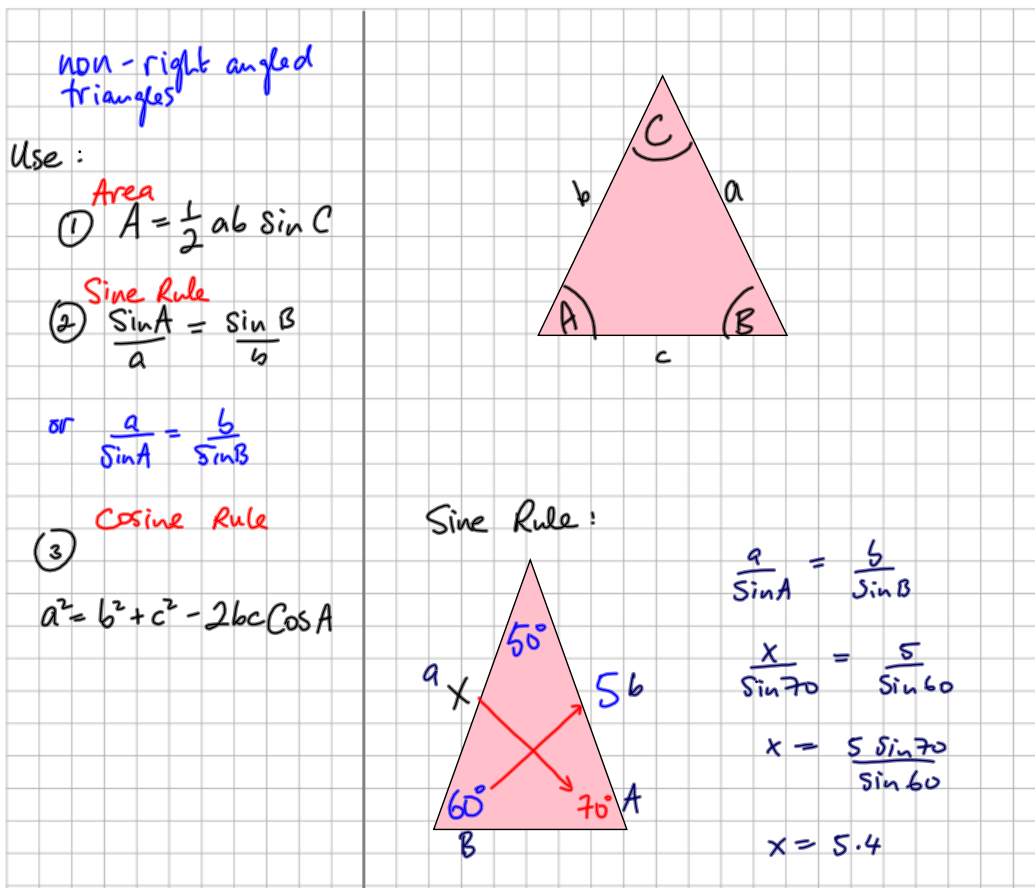 non-right angled
triangles
Use :
Area
① A = 1/2 ab sin C
Sine Rule
② SinA/a = sin B/b
or a/SinA = b/SinB
Cosine Rule
③
a² = b² + c² - 2bc Cos A
C
b
a
A
B
c
Sine Rule :
50°
a
x
5
b
60°
70°
A
B
a/SinA = b/SinB
x/Sin70 = 5/Sin60
x = 5 Sin70/Sin60
x = 5.4